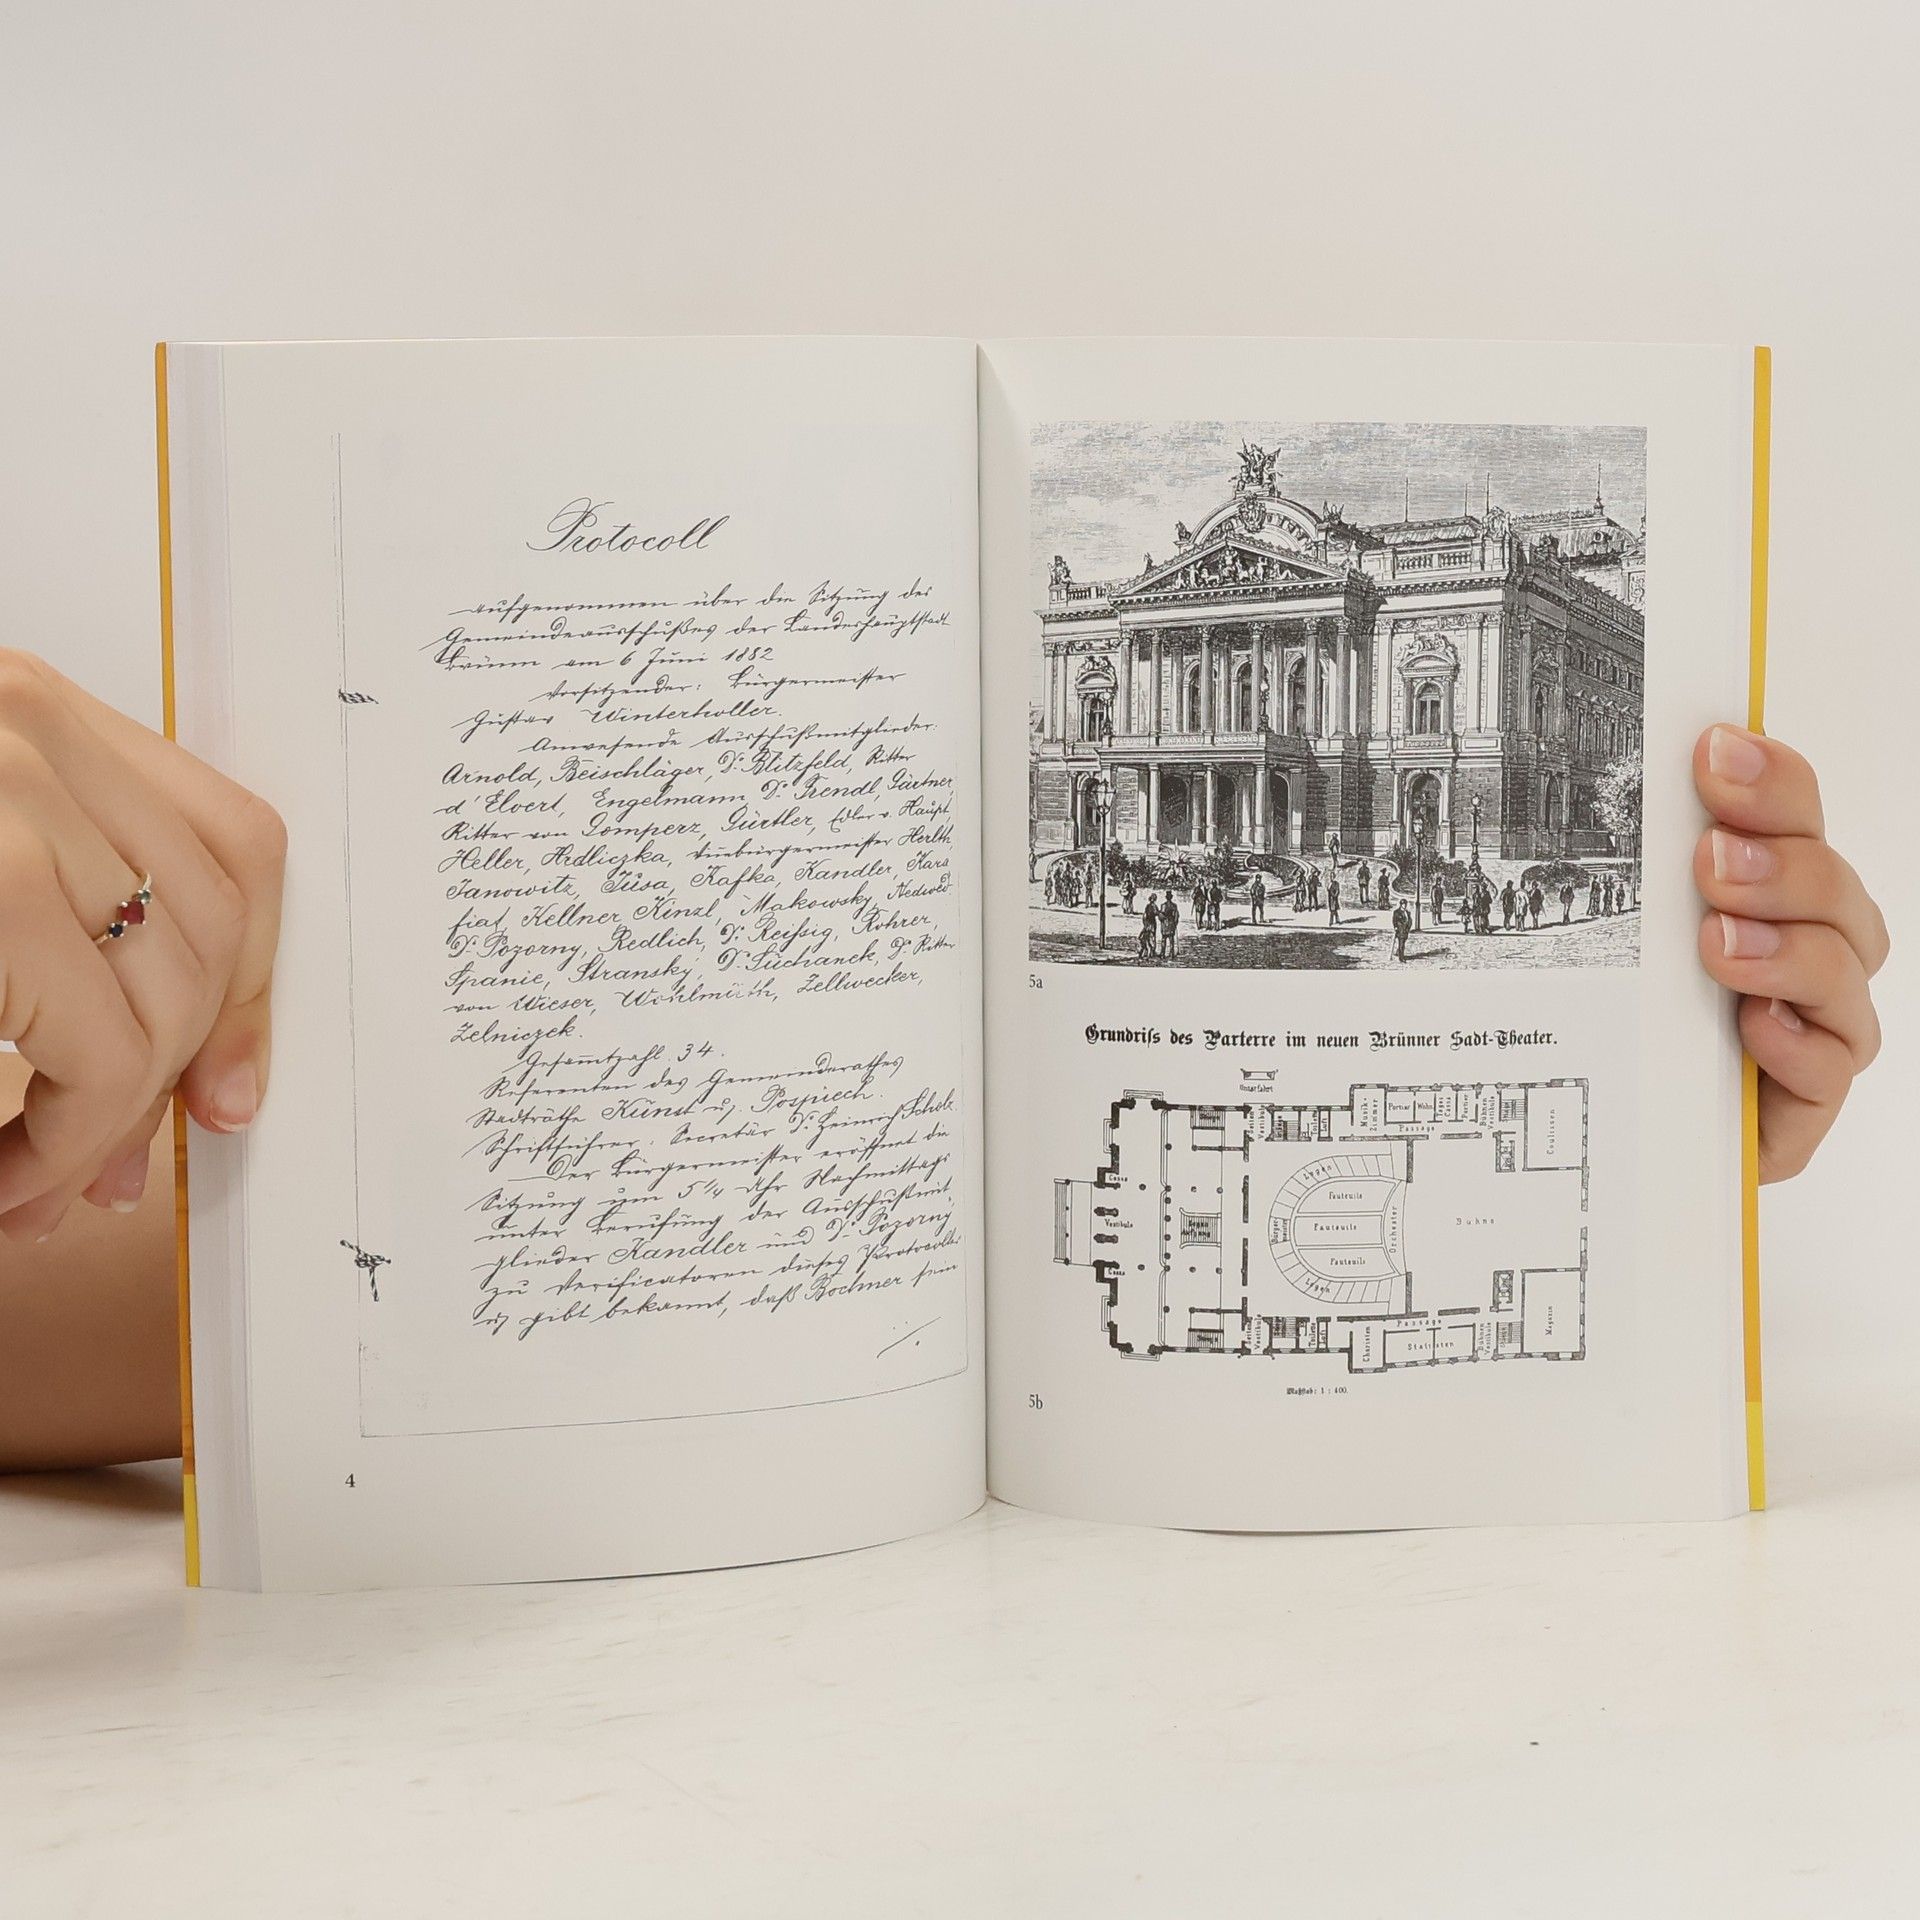 Protocoll
aufgenommen über die Sitzung des
Gemeindeausschußes der Landeshauptstadt
Brünn am 6 Juni 1882
Vorsitzender: Bürgermeister
Gustav Winterholler.
Anwesende Ausschußmitglieder:
Arnold, Beischläger, Dr. Blitzfeld, Ritter
d'Elvert, Engelmann Dr. Frendl, Gärtner,
Ritter von Gomperz, Gürtler, Edler v. Haupt,
Heller, Hrdliczka, Vicebürgermeister Herlth,
Janowitz, Jusa, Kafka, Kandler, Kara
fiat, Kellner Kinzl, Makowsky, Nedwed
Dr. Pozorny, Redlich, Dr. Reißig, Rohrer,
Spanie, Stransky, Dr. Suchanek, Dr. Ritter
von Wieser, Wohlmuth, Zellwecker,
Zelniczek.
Gesam̅tzahl 34.
Referenten des Gemeinderathes
Stadträthe Kunst u. Pospiech.
Schriftführer: Secretär Dr. Heinrich Scholz.
Der Bürgermeister eröffnet die
Sitzung um 5 1/4 Uhr Nachmittags
unter Berufung der Ausschußmit-
glieder Kandler und Dr. Pozorny
zu Verificatoren dieses Protocolles
u. gibt bekannt, daß Bochner sein
4
5a
Grundriss des Parterre im neuen Brünner Sadt-Theater.
Unterfahrt
Musik-Zimmer
Portier
Wohn
Tages Cassa
Portier
Bühnen Vestibule
Coulissen
Passage
Toilette
Cassa
Vestibule
Cassa
Logen
Fauteuils
Fauteuils
Fauteuils
Logen
Orchester
Bühne
Passage
Choristen
Statisten
Bühnen Vestibule
Magazin
Toilette
Maßstab: 1 : 400.
5b